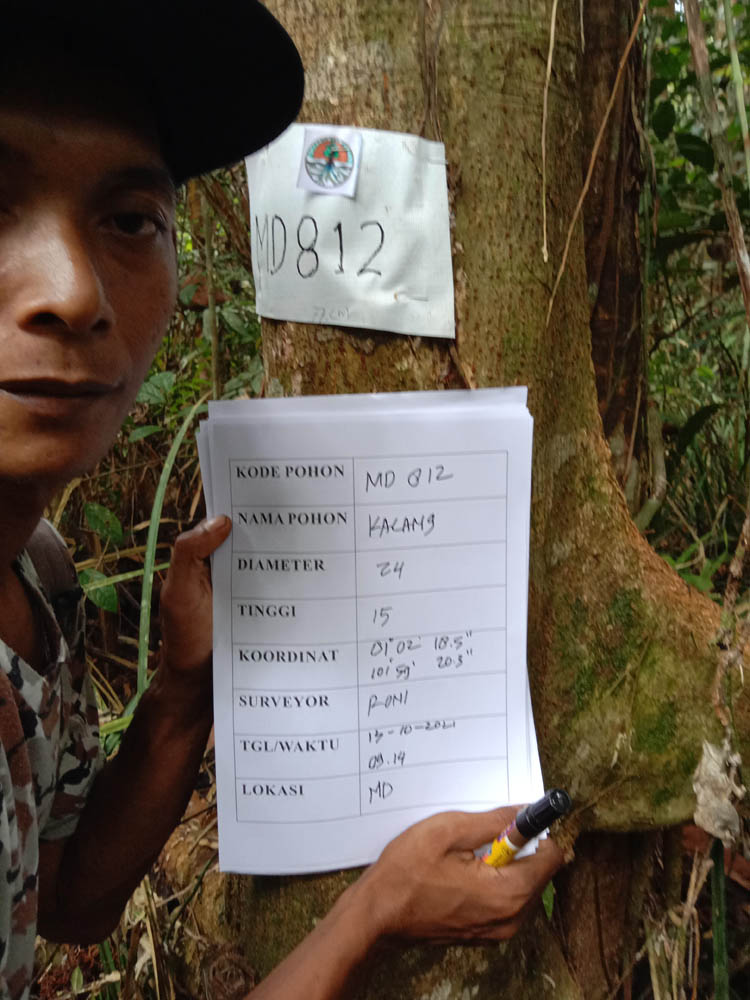 MD 812
KODE POHON MD 812
NAMA POHON KALANG
DIAMETER 24
TINGGI 15
KOORDINAT 01° 02' 18.5"
101° 59' 20.3"
SURVEYOR RONI
TGL/WAKTU 13-10-2021
09.14
LOKASI MD